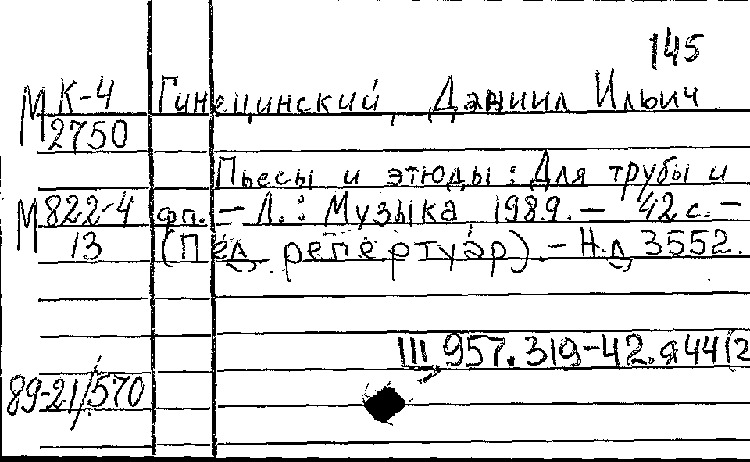 145
М К-4 Гинецинский, Даниил Ильич
2750
Пьесы и этюды : Для трубы и
М 822-4 фп. – Л. : Музыка, 1989. – 42 с. –
13 (Пед. репертуар). – Н.д. 3552.
Ш 957.319-42.я44(2
89-21/570